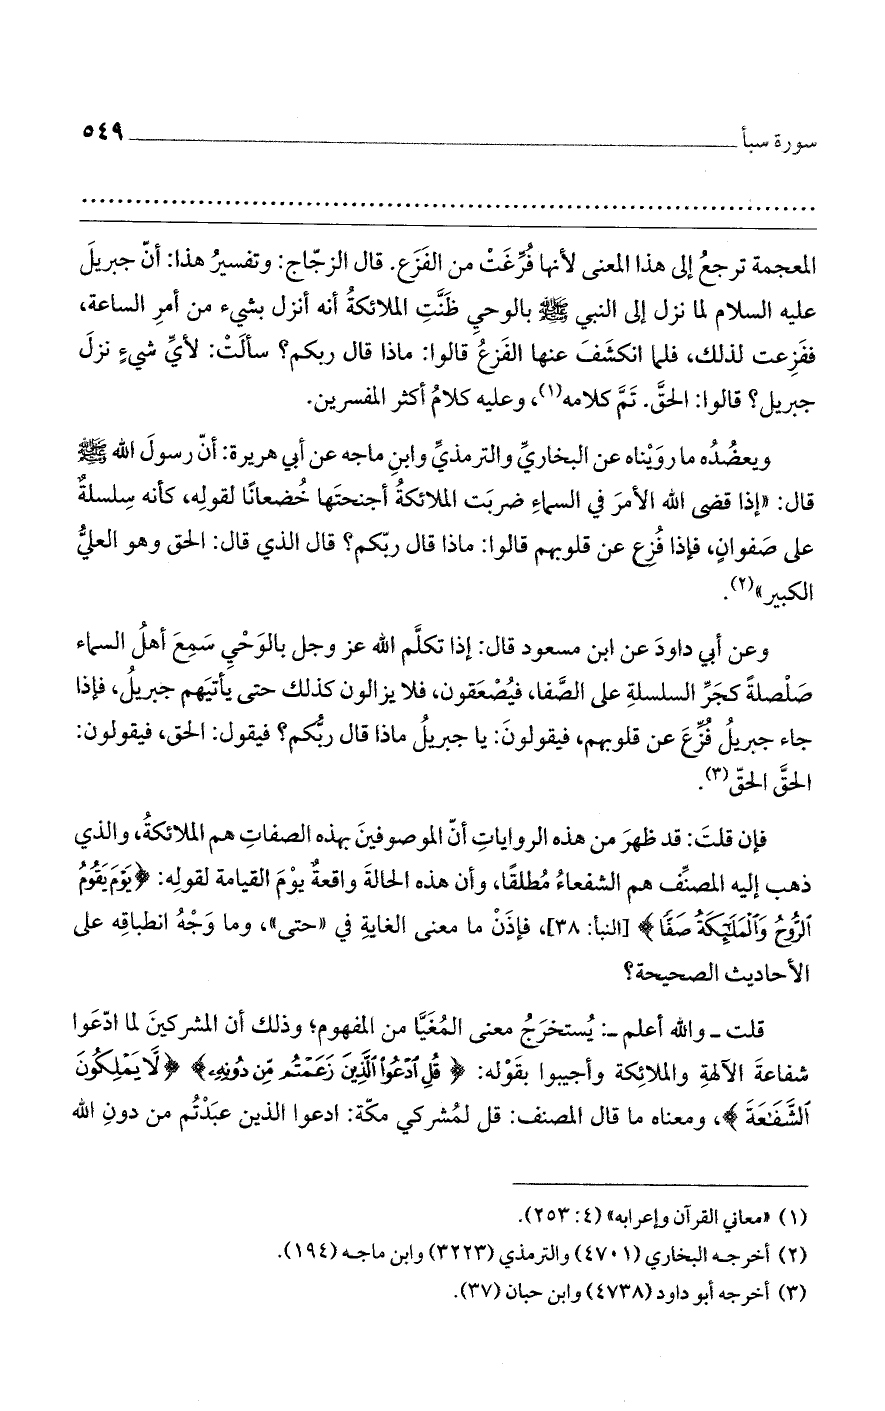 سورة سبأ ٥٤٩
المعجمة ترجعُ إلى هذا المعنى لأنها فُرِّغَتْ من الفَزَع. قال الزجّاج: وتفسيرُ هذا: أنّ جبريلَ
عليه السلام لما نزل إلى النبي ﷺ بالوحيِ ظَنَّتِ الملائكةُ أنه أنزل بشيء من أمرِ الساعة،
ففَزِعت لذلك، فلما انكشَفَ عنها الفَزعُ قالوا: ماذا قال ربكم؟ سألَتْ: لأيِّ شيءٍ نزلَ
جبريل؟ قالوا: الحقَّ. تَمَّ كلامه(١)، وعليه كلامُ أكثر المفسرين.
ويعضُدُه ما روَيْناه عن البخاريِّ والترمذيِّ وابنِ ماجه عن أبي هريرة: أنّ رسولَ الله ﷺ
قال: «إذا قضى الله الأمرَ في السماءِ ضربَت الملائكةُ أجنحتَها خُضعانًا لقولِه، كأنه سِلسلةٌ
على صَفوانٍ، فإذا فُزِع عن قلوبهم قالوا: ماذا قال ربّكم؟ قال الذي قال: الحق وهو العليُّ
الكبير»(٢).
وعن أبي داودَ عن ابن مسعود قال: إذا تكلَّم الله عز وجل بالوَحْيِ سَمِعَ أهلُ السماء
صَلْصلةً كجَرِّ السلسلةِ على الصَّفا، فيُصْعَقون، فلا يزالون كذلك حتى يأتيَهم جبريلُ، فإذا
جاء جبريلُ فُزِّعَ عن قلوبهم، فيقولونَ: يا جبريلُ ماذا قال ربُّكم؟ فيقول: الحق، فيقولون:
الحقَّ الحقّ(٣).
فإن قلتَ: قد ظهرَ من هذه الرواياتِ أنّ الموصوفينَ بهذه الصفاتِ هم الملائكةُ، والذي
ذهب إليه المصنِّف هم الشفعاءُ مُطلقًا، وأن هذه الحالةَ واقعةٌ يوْمَ القيامة لقولِه: ﴿يَوْمَ يَقُومُ
ٱلرُّوحُ وَٱلْمَلَٰٓئِكَةُ صَفًّا﴾ [النبأ: ٣٨]، فإذَنْ ما معنى الغايةِ في «حتى»، وما وَجْهُ انطباقِه على
الأحاديث الصحيحة؟
قلت ـ والله أعلم ـ: يُستخرَجُ معنى المُغَيَّا من المفهوم؛ وذلك أن المشركينَ لما ادّعَوا
شفاعةَ الآلهةِ والملائكة وأجيبوا بقَوْله: ﴿قُلِ ٱدْعُوا۟ ٱلَّذِينَ زَعَمْتُم مِّن دُونِهِۦ﴾ ﴿لَا يَمْلِكُونَ
ٱلشَّفَٰعَةَ﴾، ومعناه ما قال المصنف: قل لمُشركي مكّة: ادعوا الذين عبَدْتُم من دونِ الله
(١) «معاني القرآن وإعرابه» (٤: ٢٥٣).
(٢) أخرجه البخاري (٤٧٠١) والترمذي (٣٢٢٣) وابن ماجه (١٩٤).
(٣) أخرجه أبو داود (٤٧٣٨) وابن حبان (٣٧).